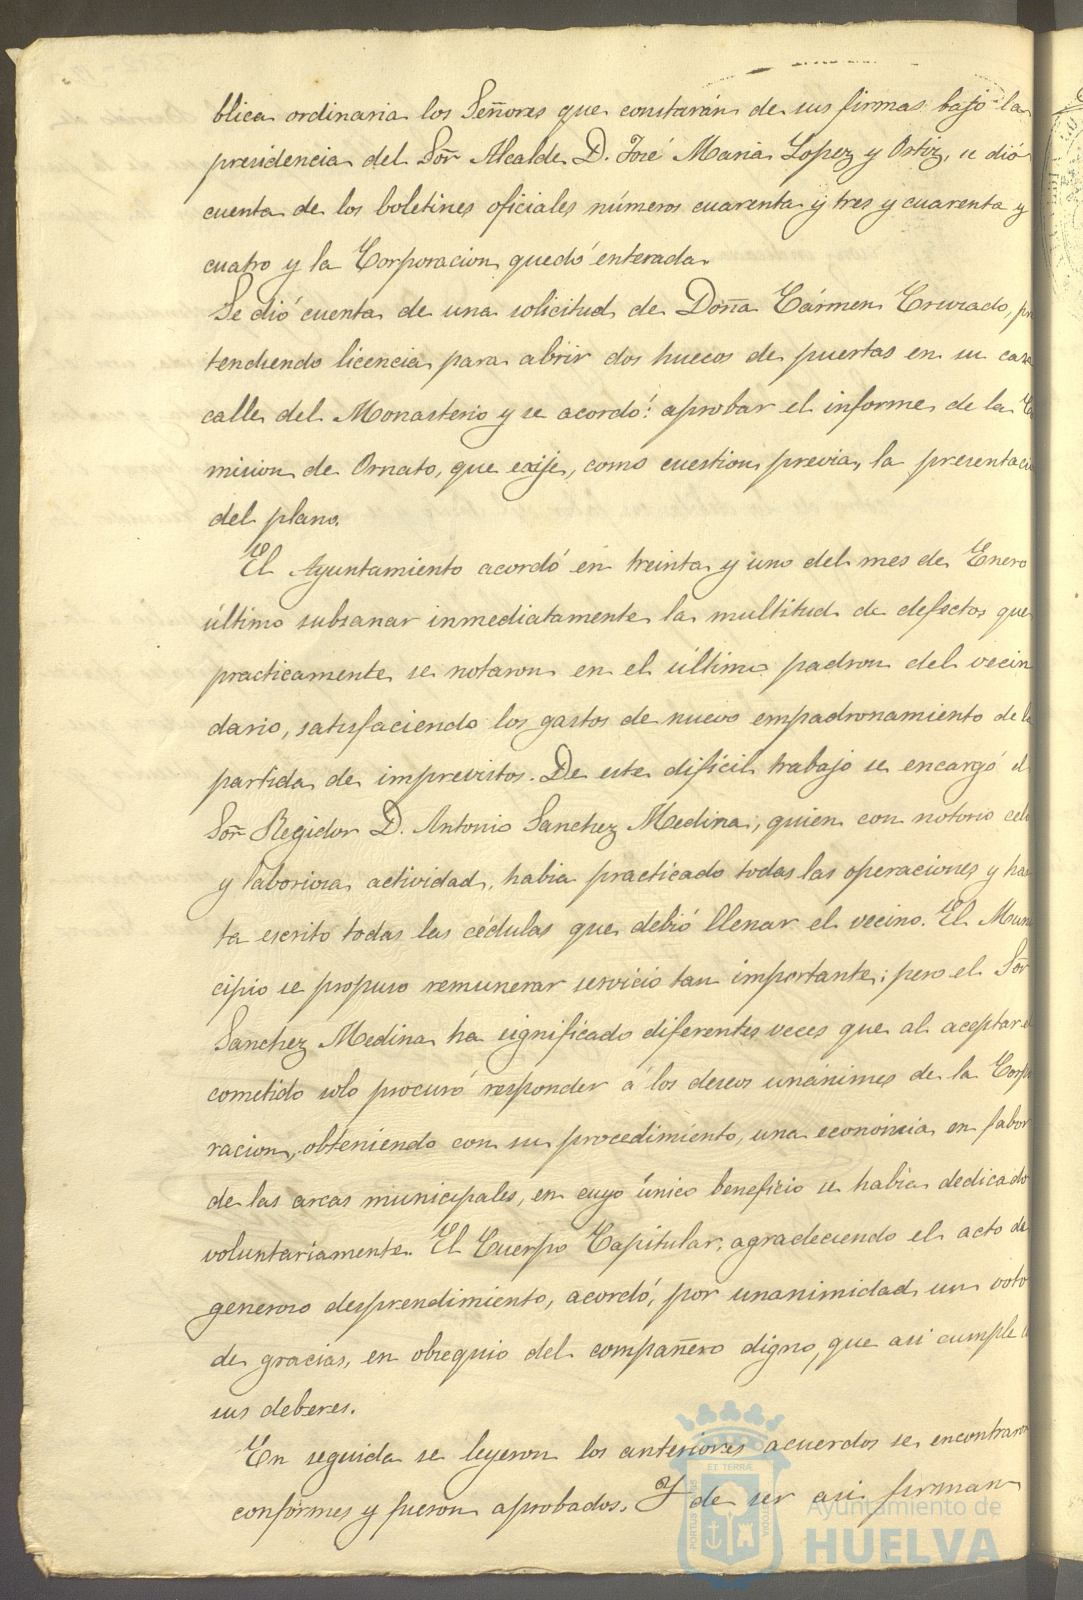 blica ordinaria los Señores que constarán de sus firmas bajo la
presidencia del Sor̃ Alcalde D. José Maria Lopez y Ortiz, se dió
cuenta de los boletines oficiales números cuarenta y tres y cuarenta y
cuatro y la Corporacion quedó enterada.
Se dió cuenta de una solicitud de Doña Cármen Cruzado, pre
tendiendo licencia para abrir dos huecos de puertas en su casa
calle del Monasterio y se acordó: aprobar el informe de la Co
mision de Ornato, que exije, como cuestion previa, la presentacion
del plano.
El Ayuntamiento acordó en treinta y uno del mes de Enero
último subsanar inmediatamente la multitud de defectos que
practicamente se notaron en el último padron del vecin
dario, satisfaciendo los gastos de nuevo empadronamiento de la
partida de imprevistos. De este dificil trabajo se encargó el
Sor̃ Regidor D. Antonio Sanchez Medina, quien con notorio celo
y laboriosa actividad, habia practicado todas las operaciones y has
ta escrito todas las cédulas que debió llenar el vecino. El Muni
cipio se propuso remunerar servicio tan importante; pero el Sor̃
Sanchez Medina ha significado diferentes veces que al aceptar el
cometido solo procuró responder á los deseos unánimes de la Corpo
racion, obteniendo con su procedimiento, una economia en fabor
de las arcas municipales, en cuyo único beneficio se habia dedicado
voluntariamente. El Cuerpo Capitular, agradeciendo el acto de
generoso desprendimiento, acordó, por unanimidad un voto
de gracias, en obsequio del compañero digno, que asi cumple
sus deberes.
En seguida se leyeron los anteriores acuerdos se encontraron
conformes y fueron aprobados. Y de ser asi firman
PORTUS MARIS ET TERRÆ CUSTODIA
Ayuntamiento de
HUELVA